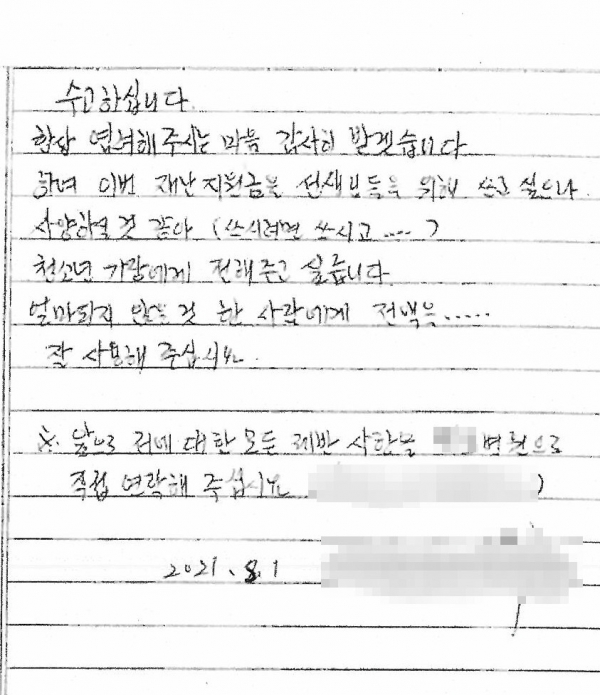 수고하십니다.
항상 염려해주시는 마음 감사히 받겠습니다
하여 이번 재난지원금을 선생님들을 위해 쓰고 싶으나
사양하실 것 같아 (쓰시려면 쓰시고 .... )
청소년 가장에게 전해주고 싶습니다.
얼마되지 않은 것 한 사람에게 전액을.....
잘 사용해 주십시요.
※. 앞으로 저에 대한 모든 제반 사항을 병원으로
직접 연락해 주십시요 )
2021. 8. 1